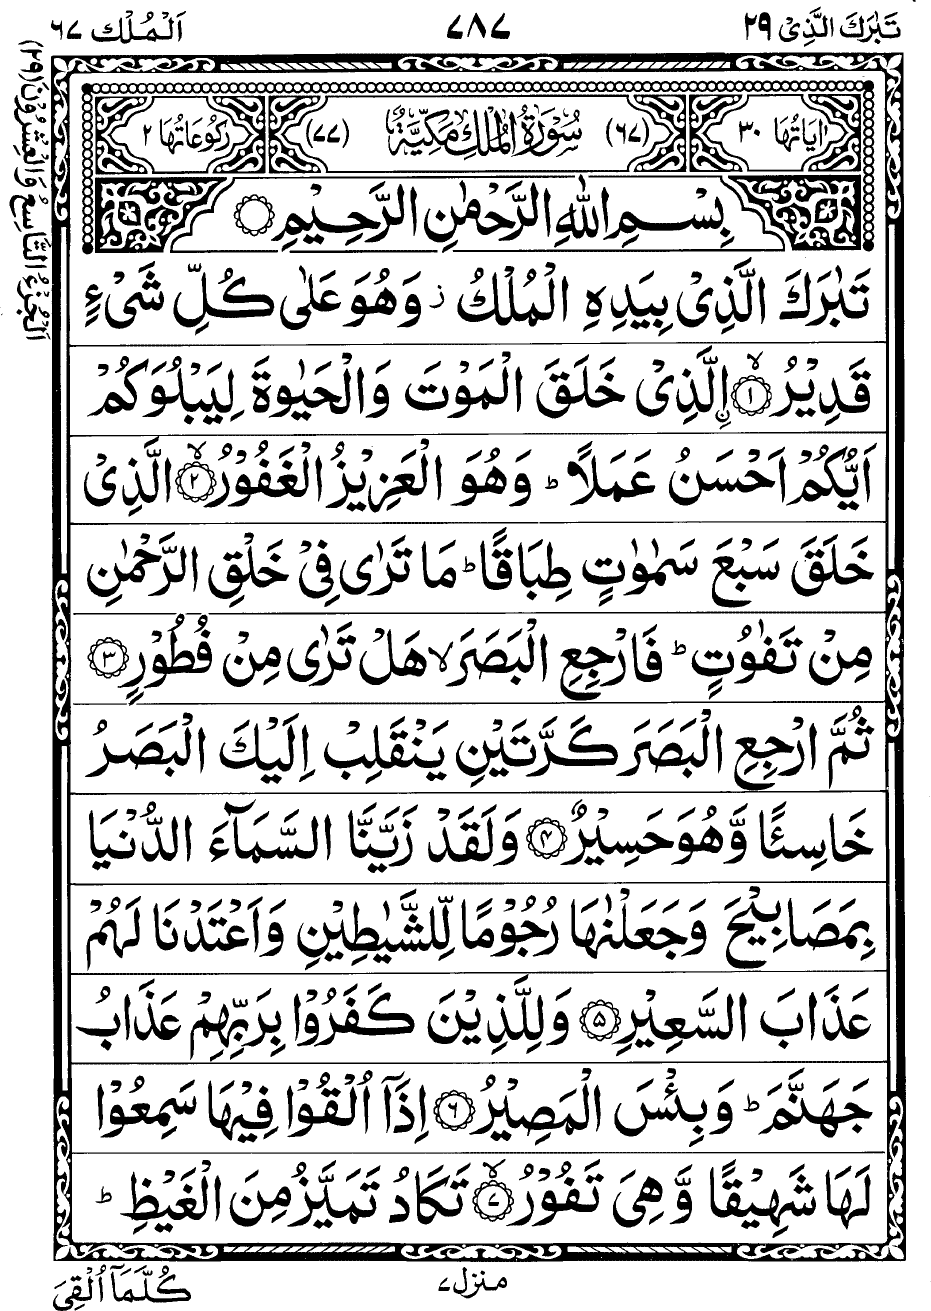 تَبٰرَكَ الَّذِىْ ٢٩ ٧٨٧ اَلْمُلْك ٦٧
اٰيَاتُهَا ٣٠ (٦٧) سُوْرَةُ الْمُلْكِ مَكِّيَّةٌ (٧٧) رُكُوْعَاتُهَا ٢
بِسْمِ اللّٰهِ الرَّحْمٰنِ الرَّحِيْمِ ۝
تَبٰرَكَ الَّذِىْ بِيَدِهِ الْمُلْكُ ز وَهُوَ عَلٰى كُلِّ شَىْءٍ
قَدِيْرُ ۙ‏﴿۱﴾ اۨلَّذِىْ خَلَقَ الْمَوْتَ وَالْحَيٰوةَ لِيَبْلُوَكُمْ
اَيُّكُمْ اَحْسَنُ عَمَلًا ؕ وَهُوَ الْعَزِيْزُ الْغَفُوْرُ ۙ‏﴿۲﴾ الَّذِىْ
خَلَقَ سَبْعَ سَمٰوٰتٍ طِبَاقًا ؕ مَا تَرٰى فِىْ خَلْقِ الرَّحْمٰنِ
مِنْ تَفٰوُتٍ ؕ فَارْجِعِ الْبَصَرَ ۙ هَلْ تَرٰى مِنْ فُطُوْرٍ ﴿۳﴾
ثُمَّ ارْجِعِ الْبَصَرَ كَرَّتَيْنِ يَنْقَلِبْ اِلَيْكَ الْبَصَرُ
خَاسِئًا وَّهُوَ حَسِيْرٌ ﴿۴﴾ وَلَقَدْ زَيَّنَّا السَّمَآءَ الدُّنْيَا
بِمَصَابِيْحَ وَجَعَلْنٰهَا رُجُوْمًا لِّلشَّيٰطِيْنِ وَاَعْتَدْنَا لَهُمْ
عَذَابَ السَّعِيْرِ ﴿۵﴾ وَلِلَّذِيْنَ كَفَرُوْا بِرَبِّهِمْ عَذَابُ
جَهَنَّمَ ؕ وَبِئْسَ الْمَصِيْرُ ﴿۶﴾ اِذَآ اُلْقُوْا فِيْهَا سَمِعُوْا
لَهَا شَهِيْقًا وَّهِىَ تَفُوْرُ ۙ‏﴿۷﴾ تَكَادُ تَمَيَّزُ مِنَ الْغَيْظِ ؕ
منزل ٧ كُلَّمَآ اُلْقِىَ
اَلْجُزْءُ التَّاسِعُ وَالْعِشْرُوْنَ (٢٩)